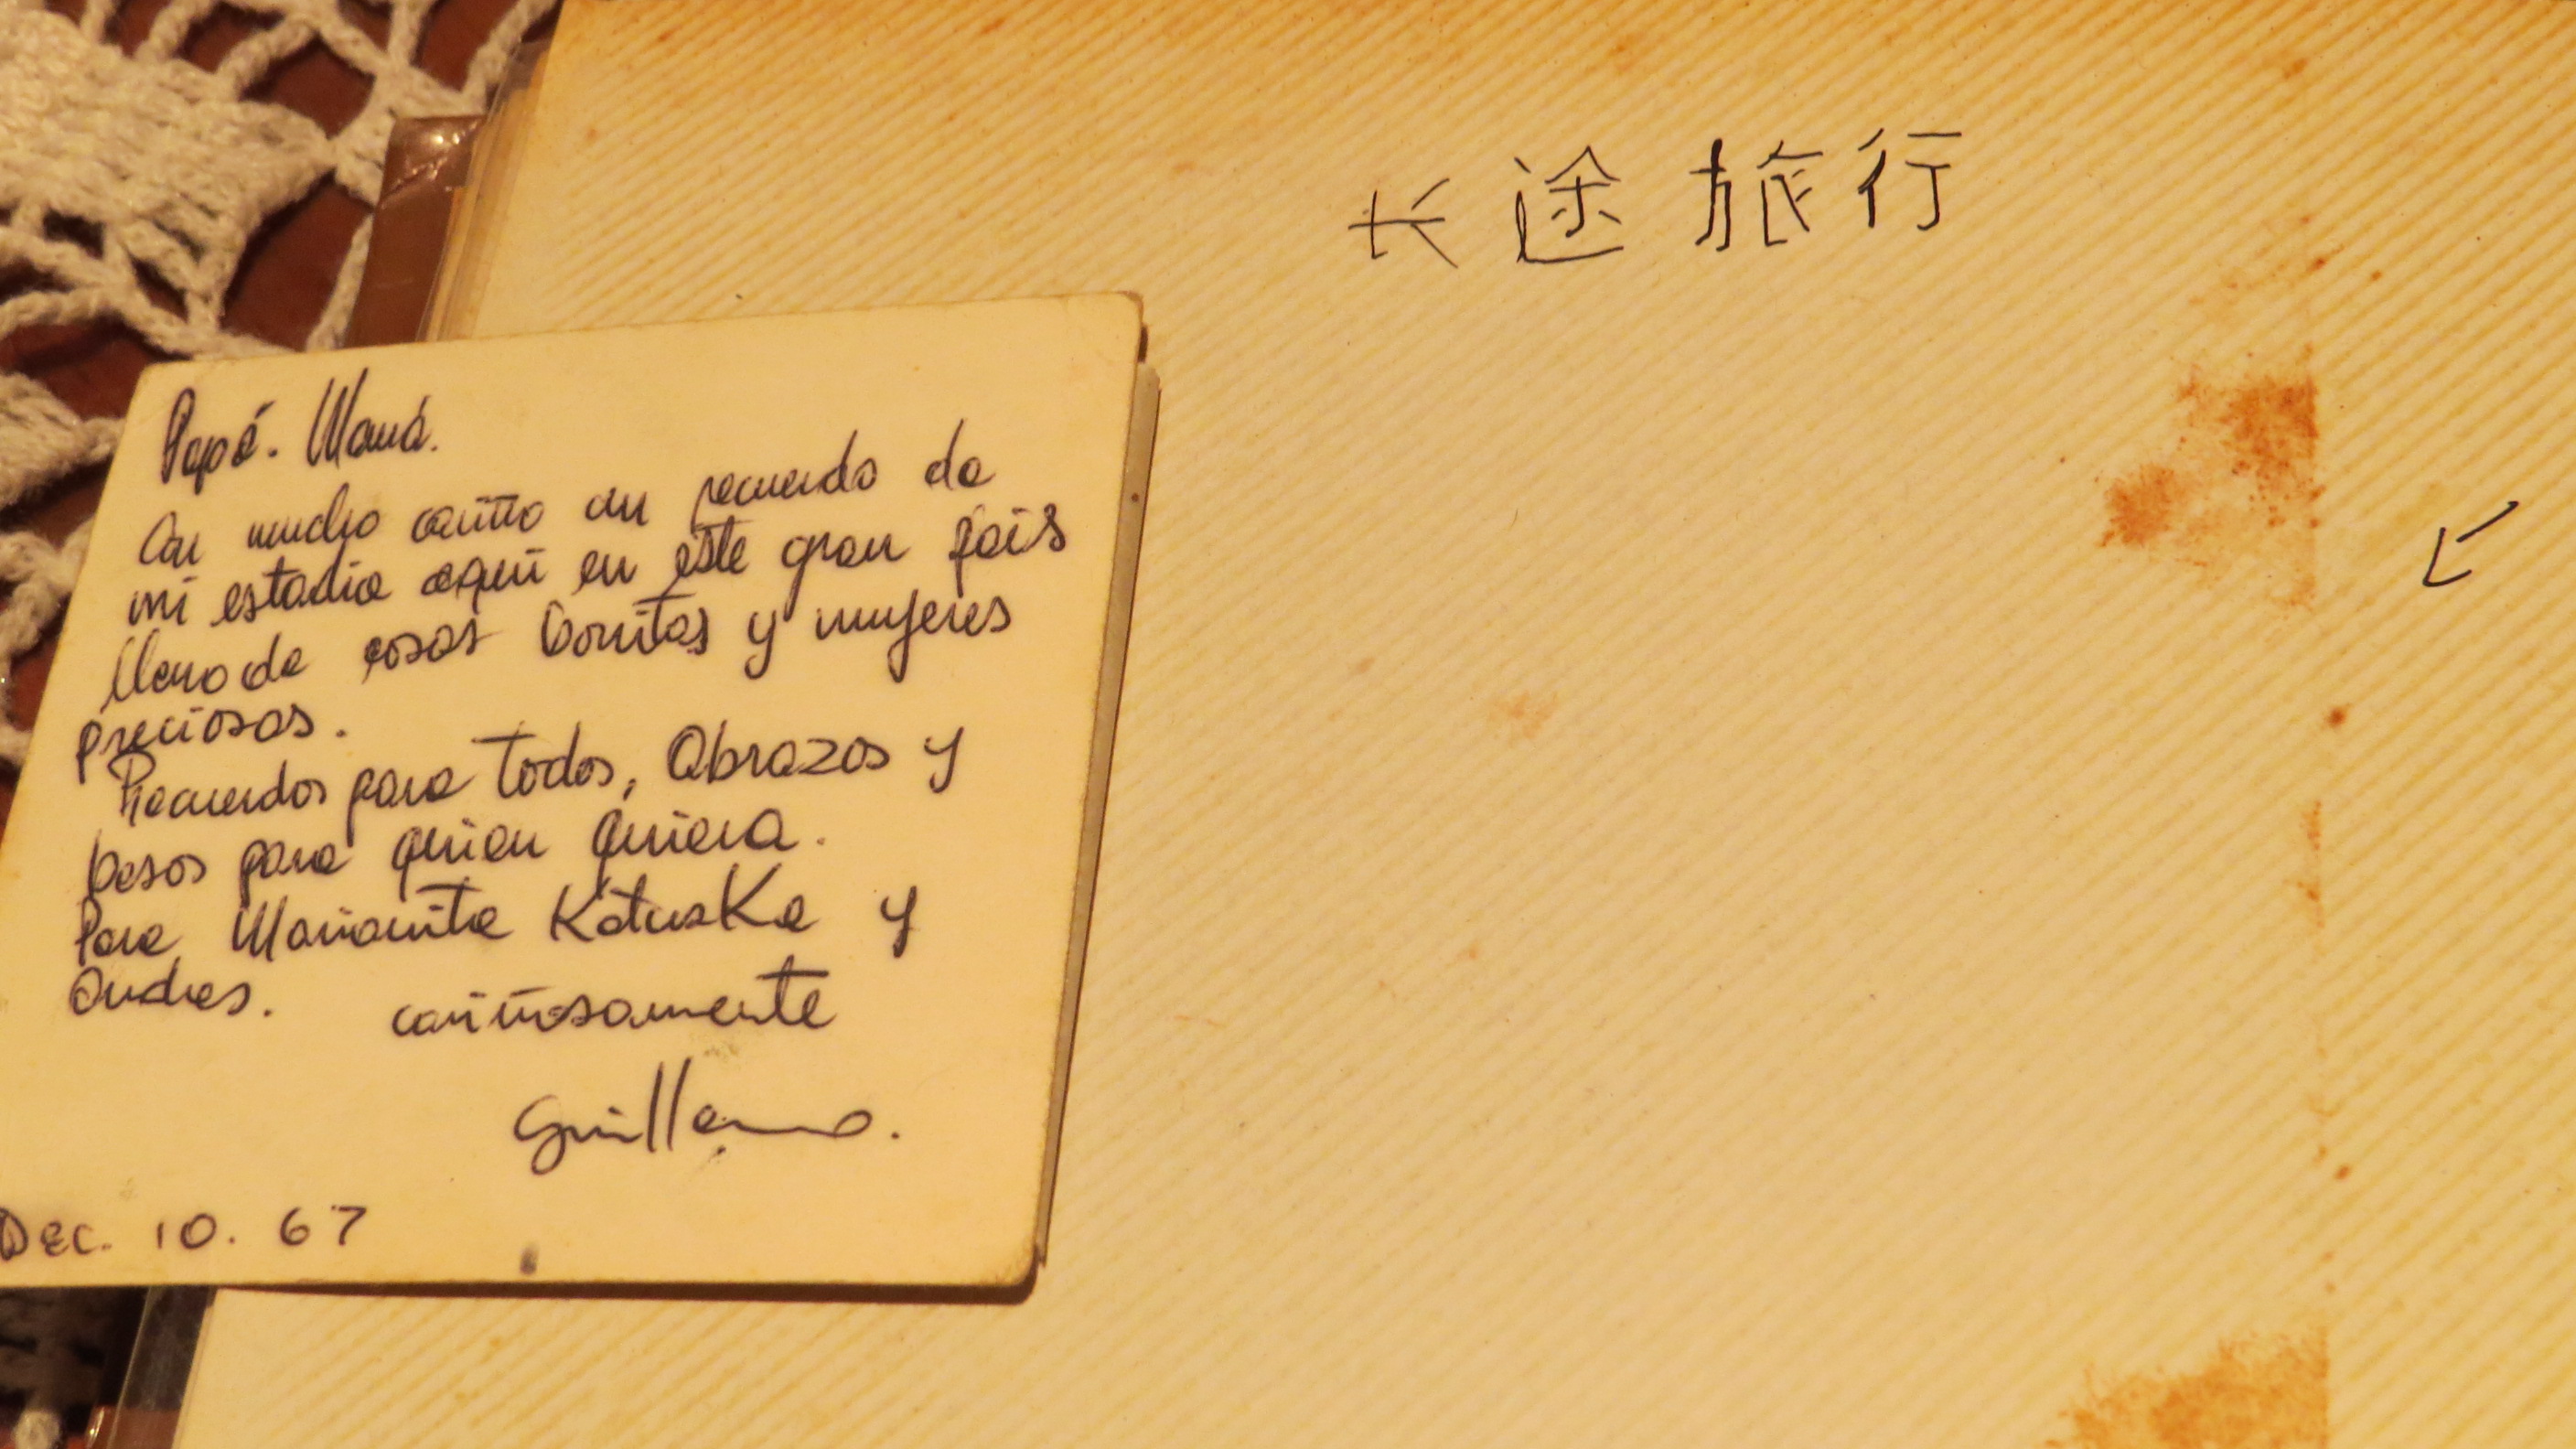 长途旅行
Papá. Mamá.
Con mucho cariño un recuerdo de
mi estadía aquí en este gran país
lleno de cosas bonitas y mujeres
preciosas.
Recuerdos para todos, Abrazos y
besos para quien quiera.
Para Marianita Katuska y
Andres. cariñosamente
Guillermo.
Dec. 10. 67